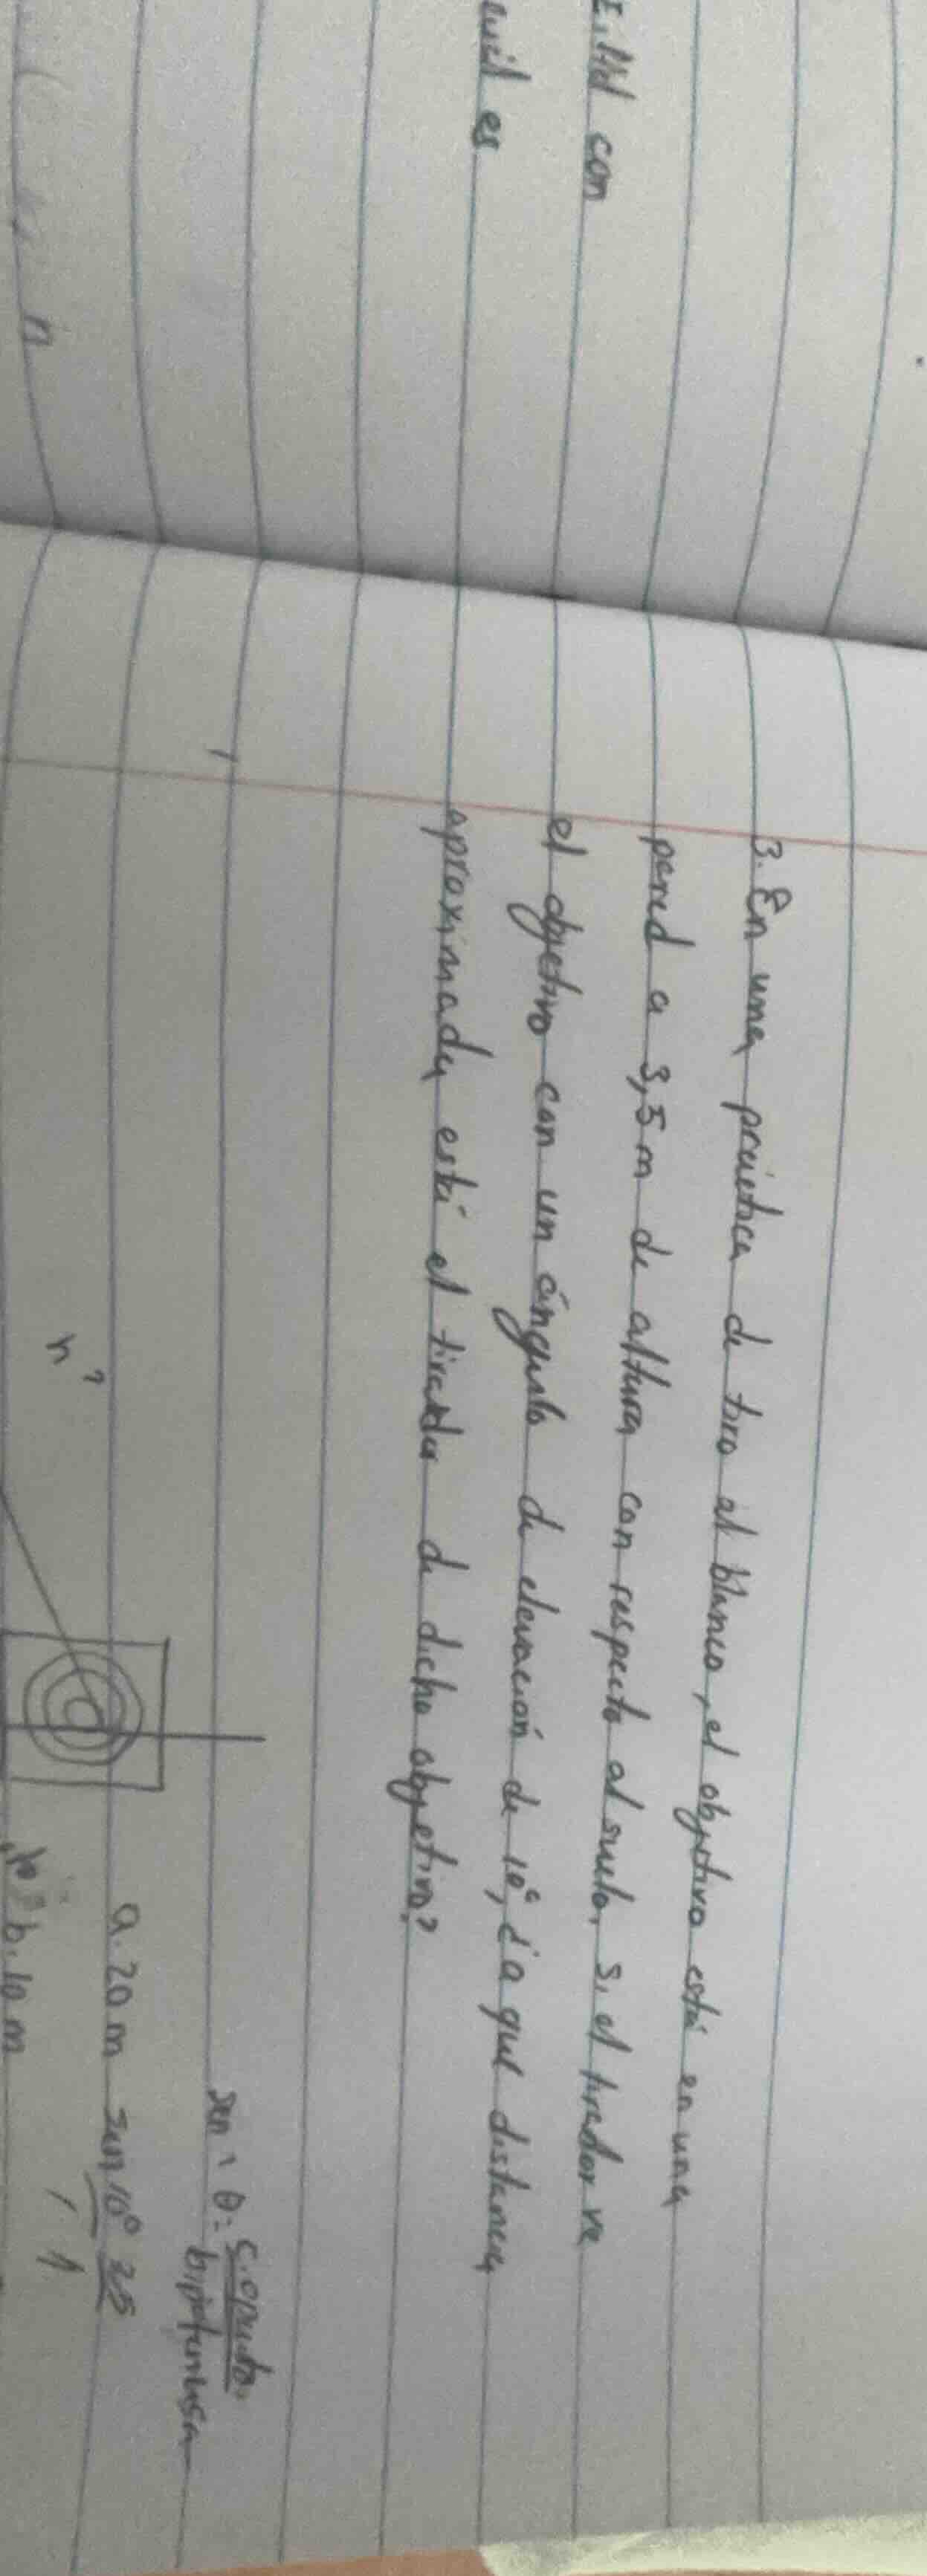 con
es
3. En una práctica de tiro al blanco, el objetivo está en una
pared a 3,5 m de altura con respecto al suelo, si el tirador ve
el objetivo con un ángulo de elevación de 10°, ¿a que distancia
aproximada está el tirador de dicho objetivo?
h?
sen θ = c.opuesto
hipotenusa
a. 20 m
10°
b. 10 m